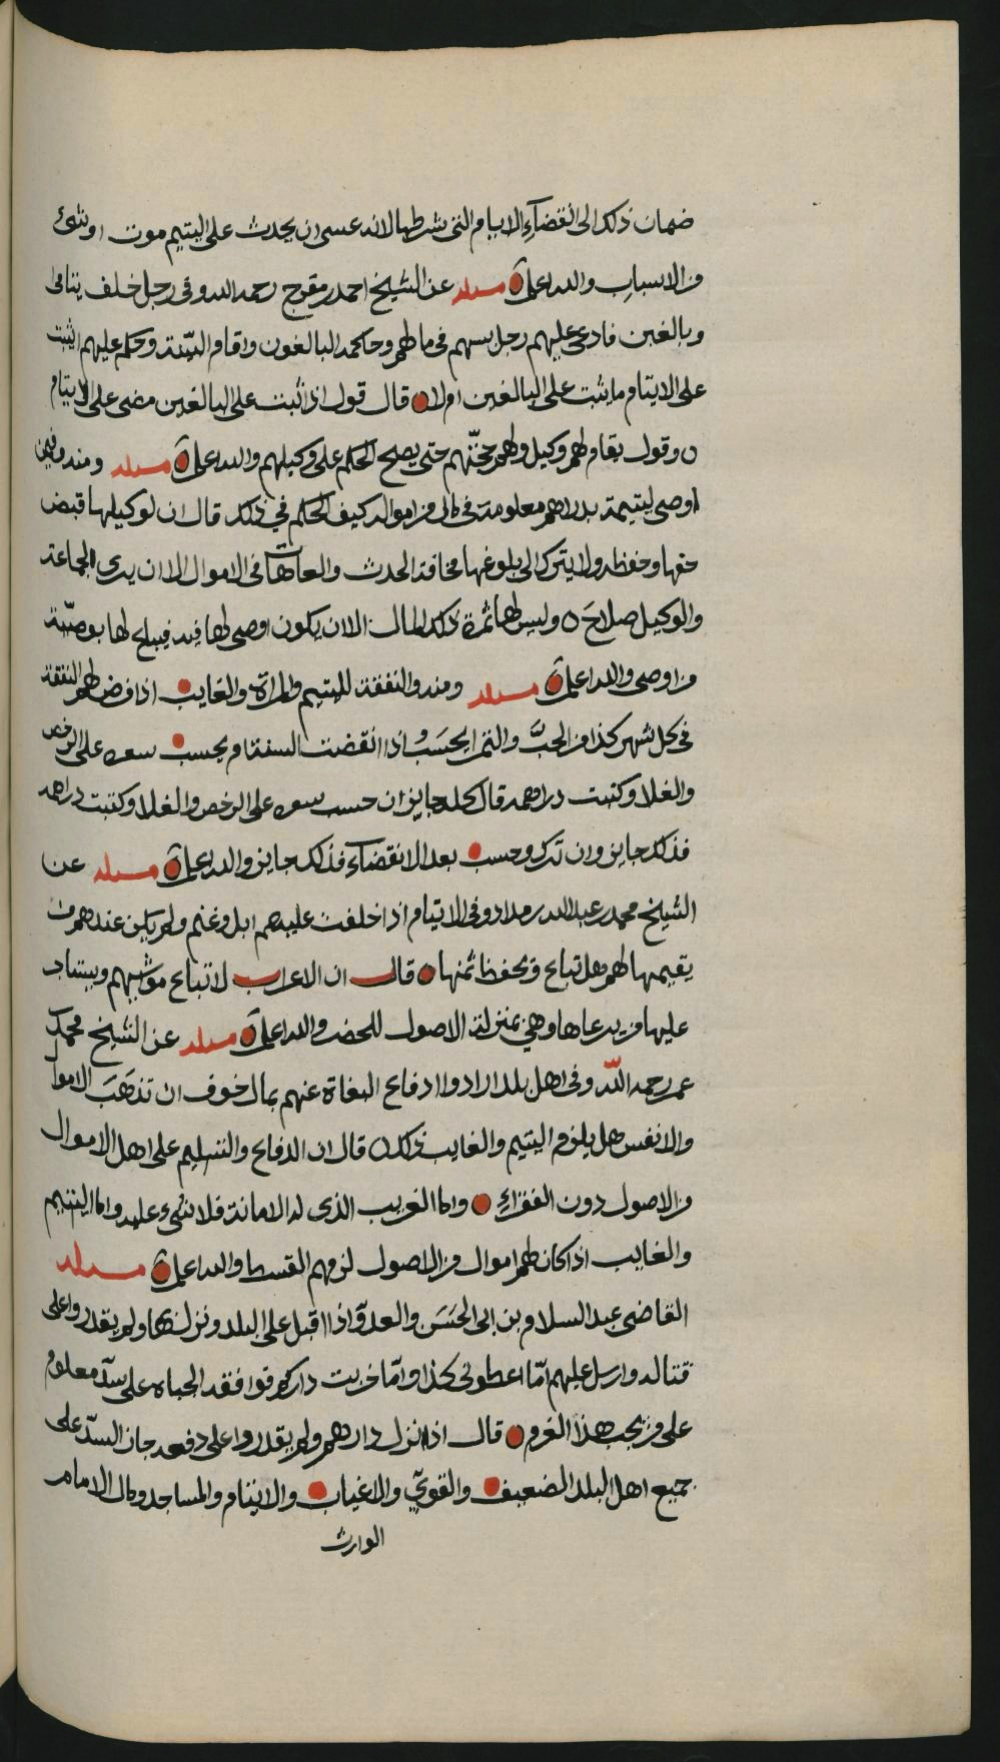 ضمان ذلك الى انقضآء الايام التى شرطها لانه عسى ان يحدث على اليتيم موت اوشئ
من الاسباب والله اعلم مسئله عن الشيخ احمد بن مفرج رحمه الله وفى رجل خلف يتامى
وبالغين فادعى عليهم رجل بسهم فى مالهم وحاكمه البالغون واقام البيّنة وحكم عليهم ايثبت
على الايتام ماثبت على البالغين ام لا قال قول اذا ثبت على البالغين مضى على الايتام
وقول يقام لهم وكيل ولهم حجّتهم حتى يصلح الحكم على وكيلهم والله اعلم مسئله ومنه وفيمن
اوصى ليتيمة بدراهم معلومة فى مال من امواله كيف الحكم في ذلك قال ان لوكيلها قبض
حقها وحفظه ولا يترك الى بلوغها مخافة الحدث والعاهات فى الاموال الا ان يرى الجماعة
والوكيل صلاحَ ه وليس لها ثمرة ذلك المال الا ان يكون اوصى لها فيه فيباح لها بوصيّة
من اوصى والله اعلم مسئله ومنه والنفقة لليتيم والمراة والغايب اذا فرض لهم النفقة
فى كل شهر كذا من الحبّ والتمر ايحسَبُ اذا انقضت السنة ام يحسب سعره على الرخص
والغلا وكتبت دراهمه قال كله جايز ان حسب سعره على الرخص والغلا وكتبت دراهمه
فذلك جايز وان ترك وحسب بعد الانقضآء فذلك جايز والله اعلم مسئله عن
الشيخ محمد بن عبدالله بن مداد وفى الايتام اذا خلفت عليهم ابل وغنم ولم يكن عندهم من
يقيمها لهم هل تباع ويحفظ ثمنها قال ان الاعراب لاتباع مواشيهم ويستاجر
عليها من يرعاها وهي بمنزلة الاصول للحضر والله اعلم مسئله عن الشيخ محمد بن
عمر رحمه الله وفى اهل بلد ارادوا ادفاع البغاة عنهم بمال خوف ان تذهَبَ الاموال
والانفس هل يلزم اليتيم والغايب ذلك قال ان الدفاع والتسليم على اهل الاموال
من الاصول دون الفقرآءِ واما الغريب الذى له الامانة فلاشيء عليه واما اليتيم
والغايب اذا كان لهم اموال من الاصول لزمهم القسط والله اعلم مسئله
القاضى عبد السلام بن ابى الحَسَن والعدوّ اذا اقبل على البلد ونزل بها ولم يقدروا على
قتاله وارسل عليهم امّا اعطونى كذا وامّا خربت داركم فوافقه الجباه على سدّ معلوم
على من يجب هذا الغرم قال اذا نزل دارهم ولم يقدروا على دفعه جاز السدّ على
جميع اهل البلد الضعيف والقويّ والاغياب والايتام والمساجد ومال الامام
الوارث